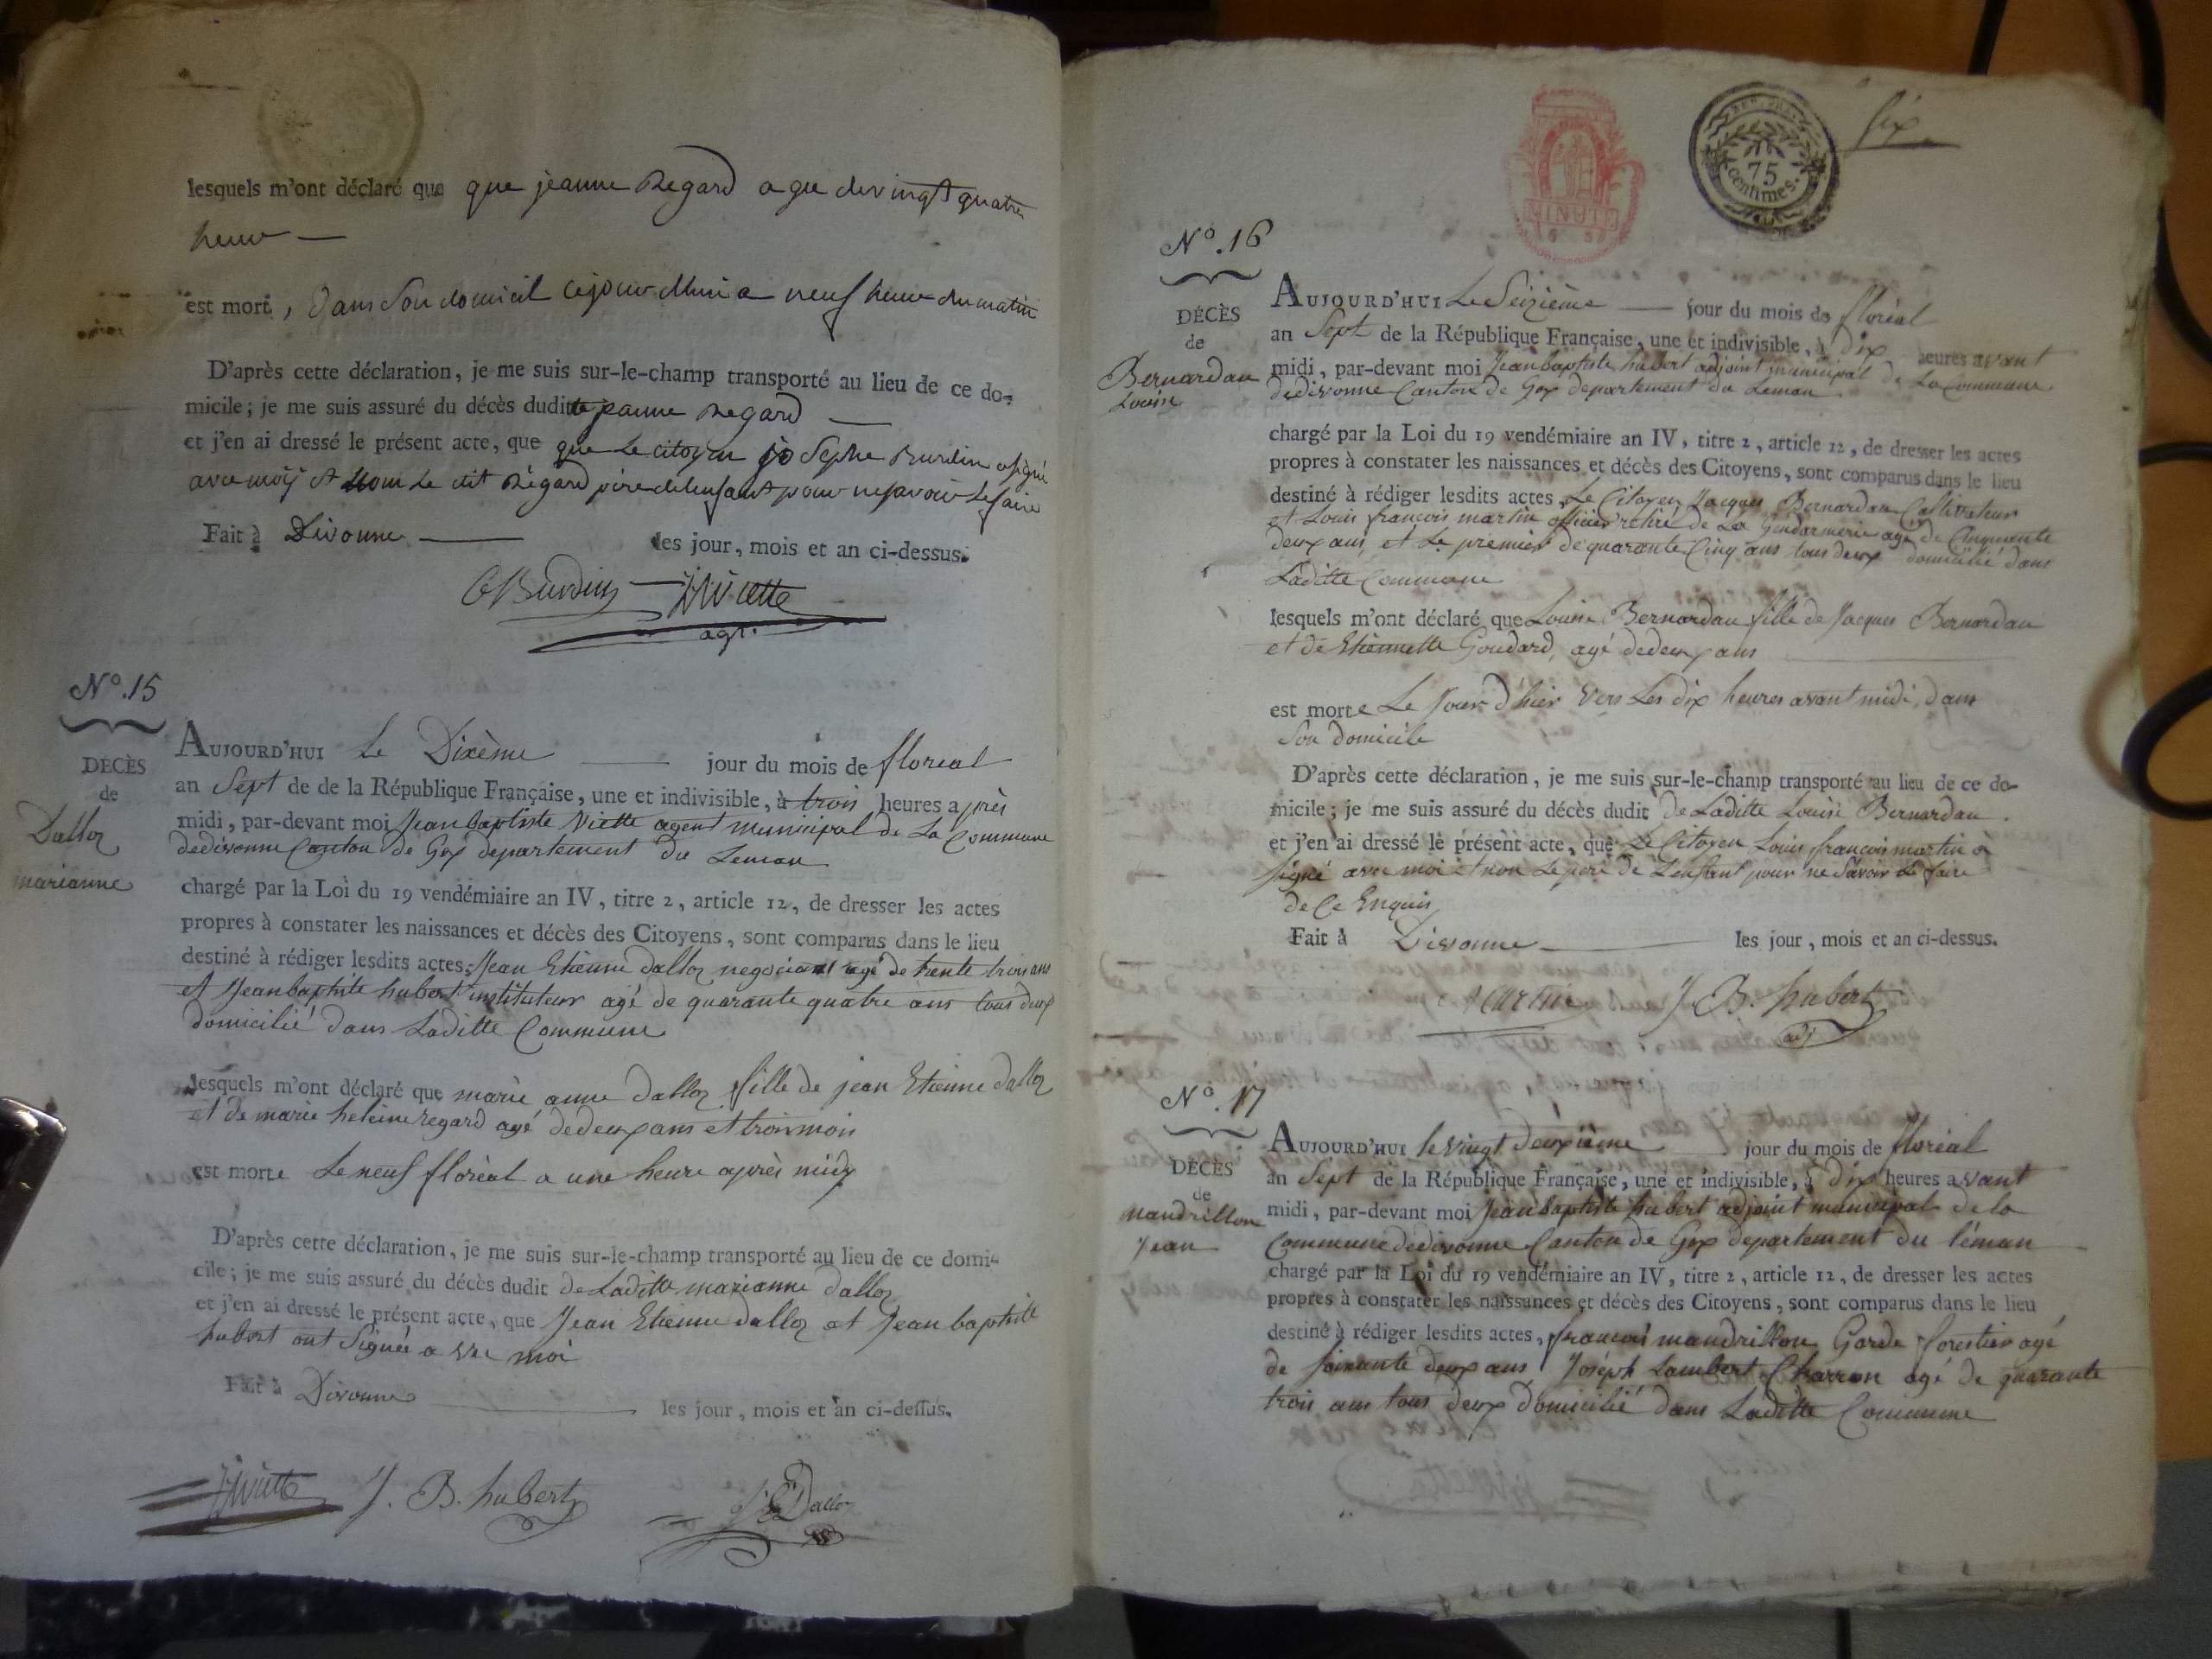 lesquels m'ont déclaré que que jeanne Regard agee de vingt quatre
heure
est mort, dans son domicil cejourdhui a neuf heure du matin
D'après cette déclaration, je me suis sur-le-champ transporté au lieu de ce do-
micile; je me suis assuré du décès dudit jeanne Regard
et j'en ai dressé le présent acte, que que le citoyen josephe Burdin a signé
avec moij et non le dit Regard père de lenfant pour ne savoir le faire
Fait à Divonne les jour, mois et an ci-dessus.
Burdin Viette
agt.
N°. 15
DÉCÈS
de
Dalloz
marianne
AUJOURD'HUI le Dixème jour du mois de floreal
an Sept de de la République Française, une et indivisible, à trois heures après
midi, par-devant moi Jean baptiste Viette agent municipal de La Commune
dedivonne Canton de Gex departement du Leman
chargé par la Loi du 19 vendémiaire an IV, titre 2, article 12, de dresser les actes
propres à constater les naissances et décès des Citoyens, sont comparus dans le lieu
destiné à rédiger lesdits actes, Jean Etienne dalloz negociant agé de trente trois ans
et Jean baptiste hubert instituteur agé de quarante quatre ans tous deux
domicilié dans Laditte Commune
lesquels m'ont déclaré que marie anne dalloz fille de jean Etienne dalloz
et de marie heleine regard agé dedeux ans et trois mois
est morte Le neuf florèal a une heure après midy
D'après cette déclaration, je me suis sur-le-champ transporté au lieu de ce domi-
cile; je me suis assuré du décès dudit de Laditte marianne dalloz
et j'en ai dressé le présent acte, que Jean Etienne dalloz et Jean baptiste
hubert ont Signé a vec moi
Fait à Divonne les jour, mois et an ci-dessus.
Viette J. B. hubert Dalloz
six
REP. FRA.
75
centimes.
MINUTE
N°. 16
DÉCÈS
de
Bernardau
Louise
AUJOURD'HUI Le Seizième jour du mois de floréal
an Sept de la République Française, une et indivisible, à dix heures avant
midi, par-devant moi Jean baptiste hubert adjoint municipal de La Commune
dedivonne Canton de Gex departement du Leman
chargé par la Loi du 19 vendémiaire an IV, titre 2, article 12, de dresser les actes
propres à constater les naissances et décès des Citoyens, sont comparus dans le lieu
destiné à rédiger lesdits actes, Le Citoyen Jacques Bernardau Cultivateur
et Louis francois martin officier retiré de La Gendarmerie agé de Cinquante
deux ans, et Le premier de quarante Cinq ans tous deux domicilié dans
Laditte Commune
lesquels m'ont déclaré que Louise Bernardau fille de Jacques Bernardau
et de Etiennette Goudard, agé dedeux ans
est morte Le Jour d'hier vers Les dix heures avant midi, dans
Son domicile
D'après cette déclaration, je me suis sur-le-champ transporté au lieu de ce do-
micile; je me suis assuré du décès dudit de Laditte Louise Bernardau
et j'en ai dressé le présent acte, que Le Citoyen Louis francois martin à
signé avec moi et non Le pere de L'enfant pour ne Savoir Le faire
de Ce Enquis
Fait à Divonne les jour, mois et an ci-dessus.
Martin J. B. hubert
adj
N°. 17
DÉCÈS
de
mandrillon
Jean
AUJOURD'HUI le vingt deuxième jour du mois de floréal
an Sept de la République Française, une et indivisible, à dix heures avant
midi, par-devant moi Jean baptiste hubert adjoint municipal de la
Commune dedivonne Canton de Gex departement du léman
chargé par la Loi du 19 vendémiaire an IV, titre 2, article 12, de dresser les actes
propres à constater les naissances et décès des Citoyens, sont comparus dans le lieu
destiné à rédiger lesdits actes, francois mandrillon Garde forestier agé
de soixante deux ans Joséph Lambert Charron agé de quarante
trois ans tous deux Domicilié dans Laditte Commune